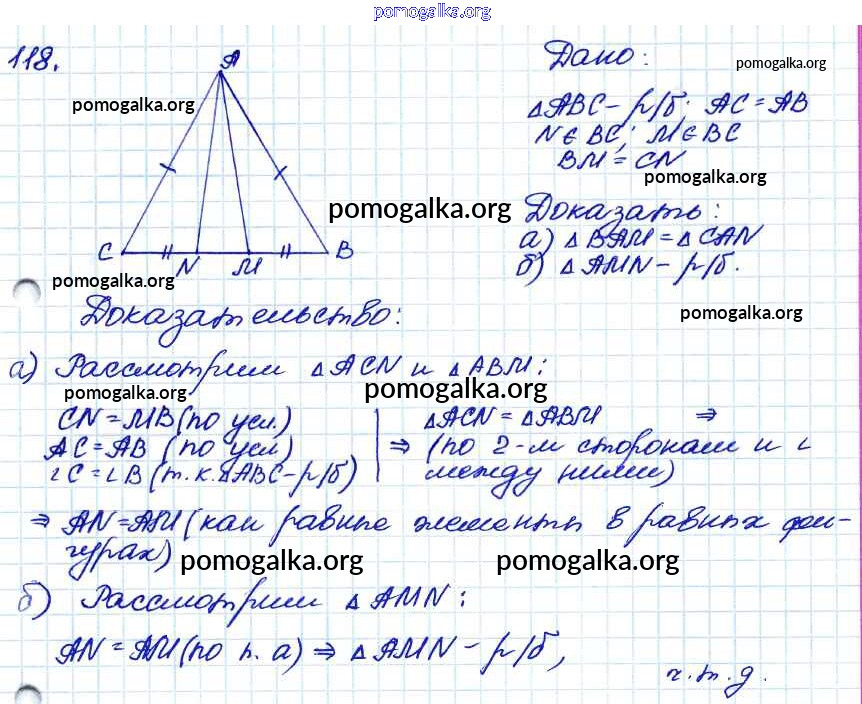 pomogalka.org
118.
A
Дано:
pomogalka.org
pomogalka.org
△ABC – р/б; AC = AB
N ∈ BC; M ∈ BC
BM = CN
pomogalka.org
pomogalka.org
Доказать:
а) △BAM = △CAN
C N M B
б) △AMN – р/б.
pomogalka.org
Доказательство:
pomogalka.org
а) Рассмотрим △ACN и △ABM:
pomogalka.org
pomogalka.org
CN = MB (по усл.) △ACN = △ABM ⇒
AC = AB (по усл) ⇒ (по 2-м сторонам и ∠
∠C = ∠B (т.к. △ABC – р/б) между ними)
⇒ AN = AM (как равные элементы в равных фи-
гурах)
pomogalka.org
pomogalka.org
б) Рассмотрим △AMN:
AN = AM (по п. а) ⇒ △AMN – р/б,
ч.т.д.